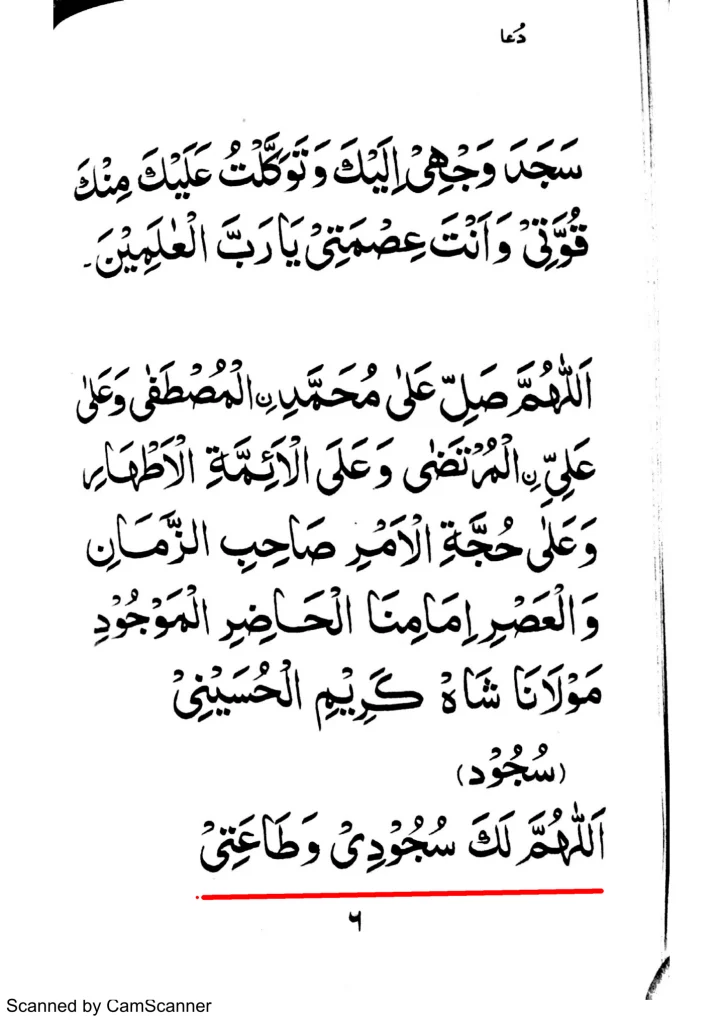 دُعا
سَجَدَ وَجْهِیْ اِلَیْكَ وَتَوَکَّلْتُ عَلَیْكَ مِنْكَ
قُوَّتِیْ وَاَنْتَ عِصْمَتِیْ یَا رَبَّ الْعٰلَمِیْنَ۔
اَللّٰهُمَّ صَلِّ عَلٰی مُحَمَّدِ نِ الْمُصْطَفٰی وَعَلٰی
عَلِیِّ نِ الْمُرْتَضٰی وَعَلَی الْاَئِمَّةِ الْاَطْهَارِ
وَعَلٰی حُجَّةِ الْاَمْرِ صَاحِبِ الزَّمَانِ
وَالْعَصْرِ اِمَامِنَا الْحَاضِرِ الْمَوْجُوْدِ
مَوْلَانَا شَاهْ کَرِیْمِ الْحُسَیْنِیْ
(سُجُوْد)
اَللّٰهُمَّ لَكَ سُجُوْدِیْ وَطَاعَتِیْ
٦
Scanned by CamScanner